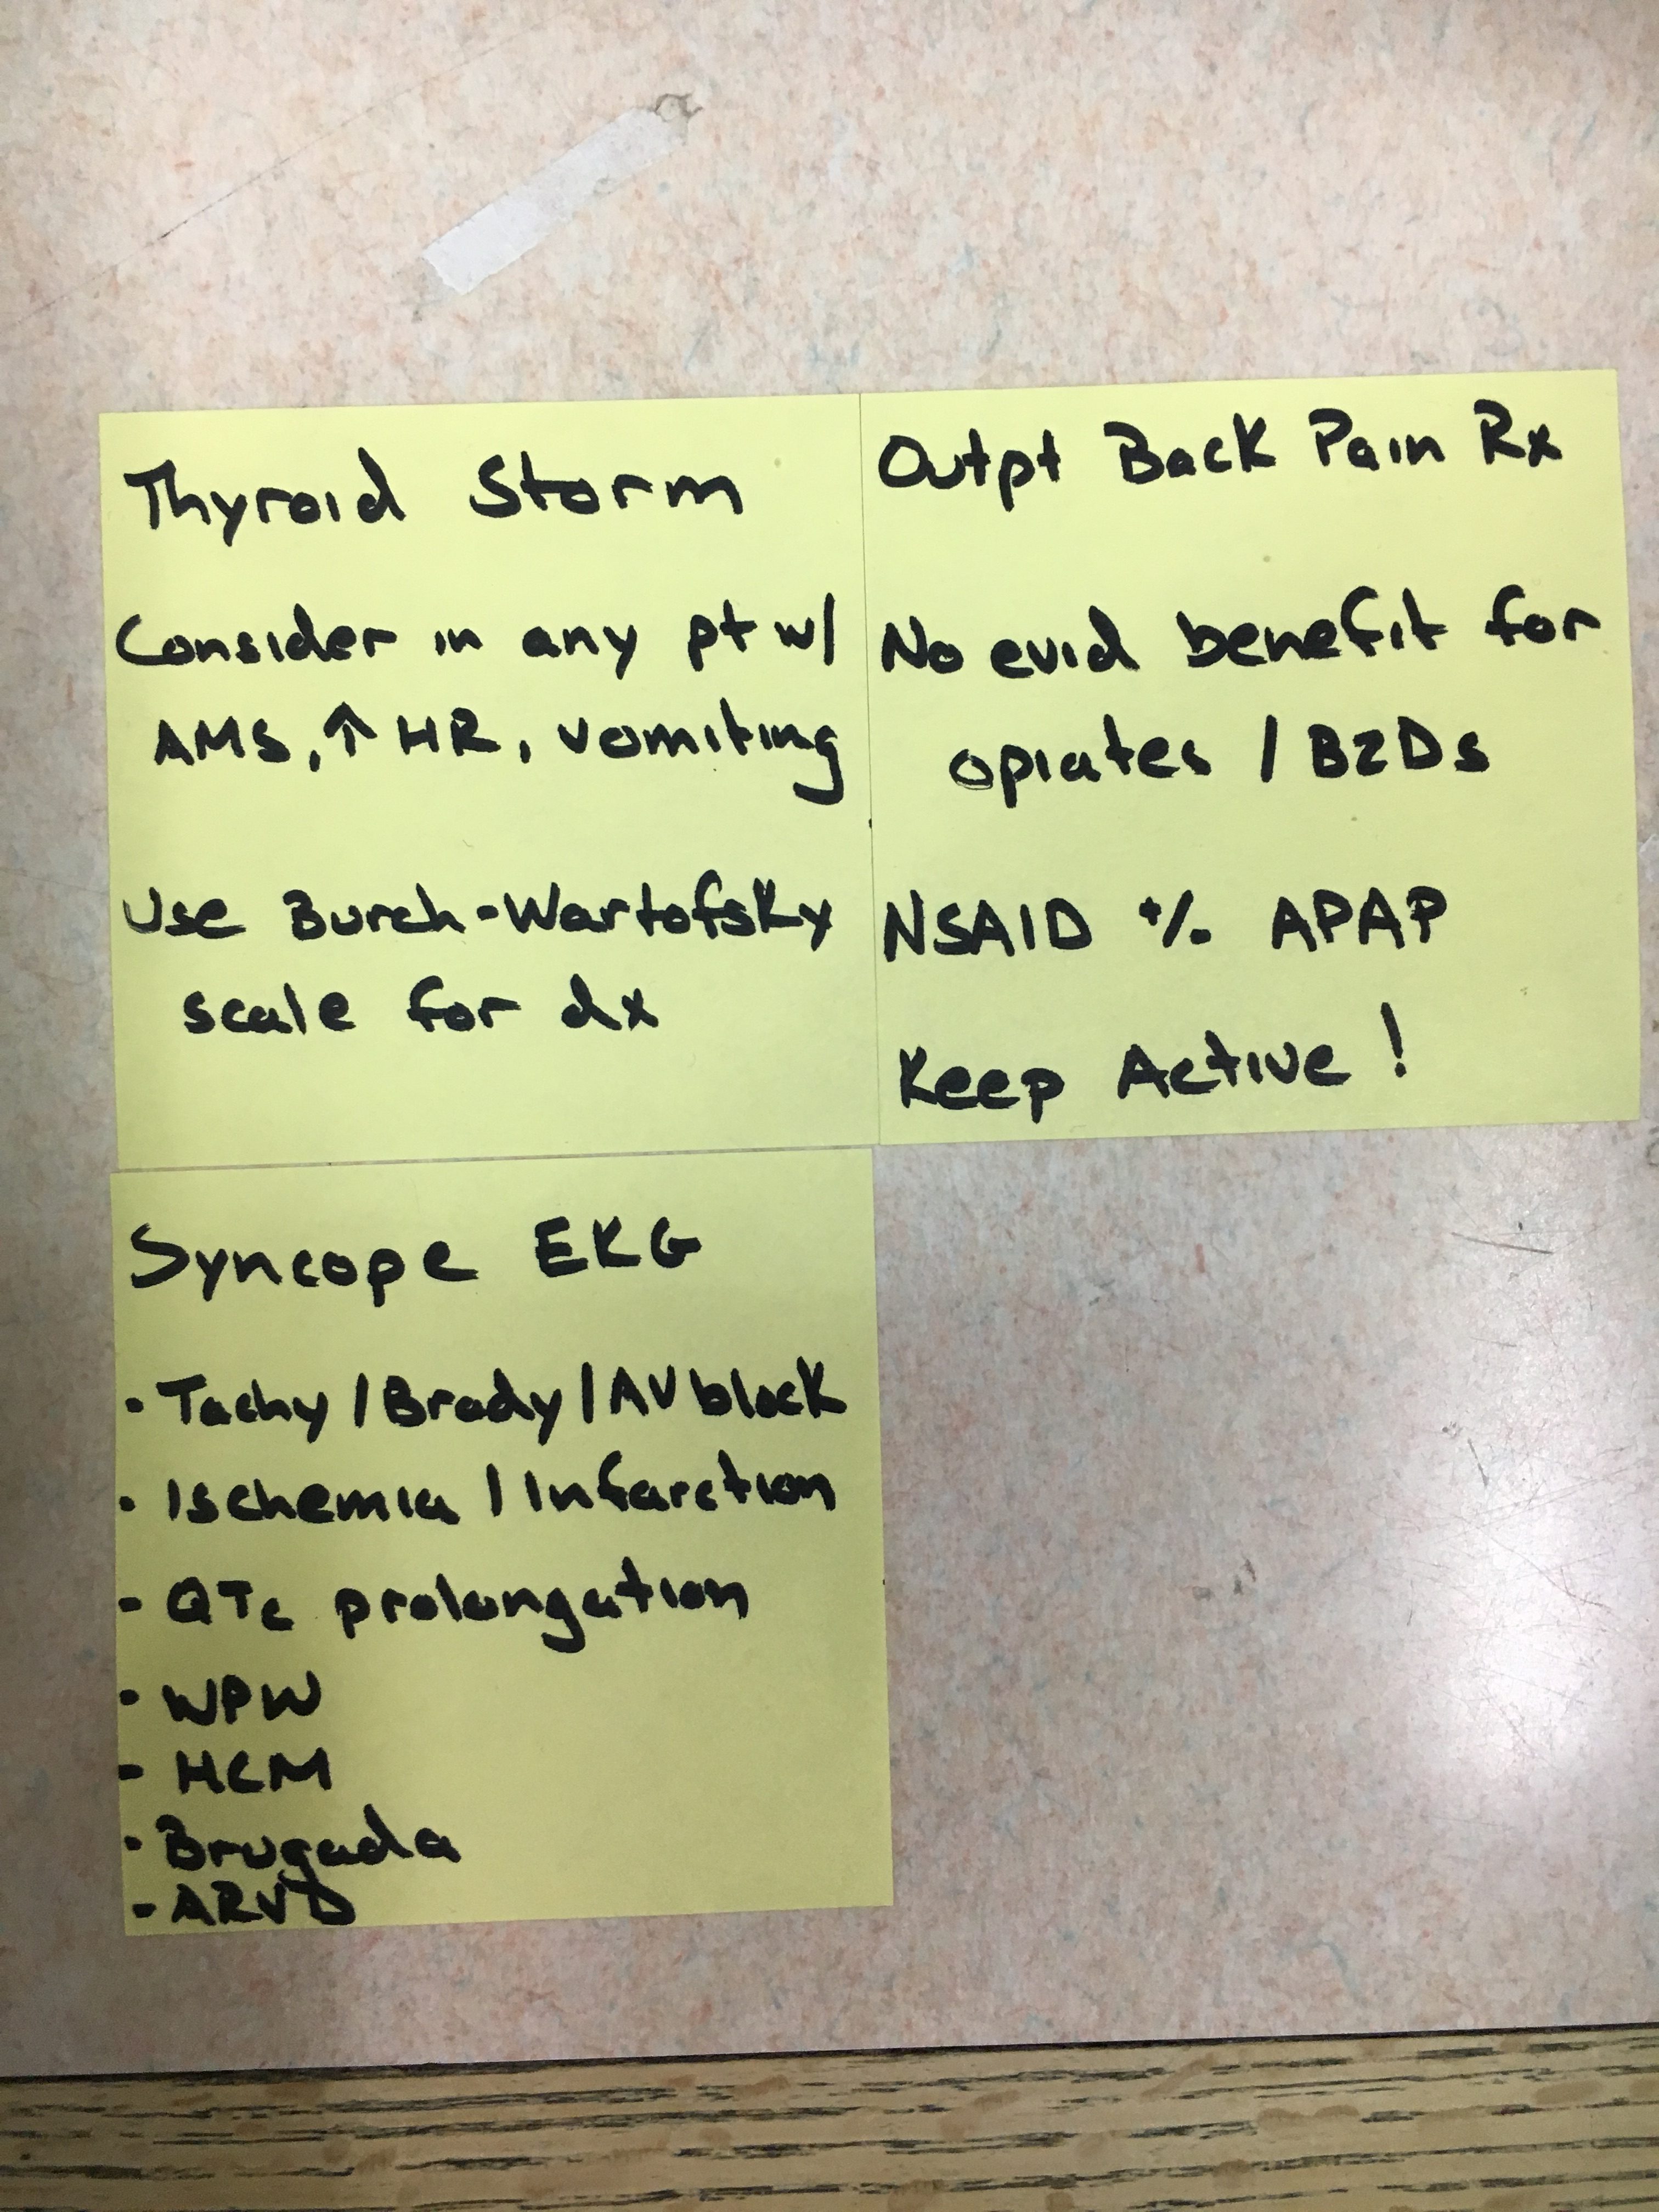 Thyroid Storm
Consider in any pt w/
AMS, ↑ HR, vomiting
Use Burch-Wartofsky
scale for dx
Outpt Back Pain Rx
No evid benefit for
opiates / BZDs
NSAID +/- APAP
Keep Active!
Syncope EKG
- Tachy/Brady/AV block
- Ischemia/Infarction
- QTc prolongation
- WPW
- HCM
- Brugada
- ARVD